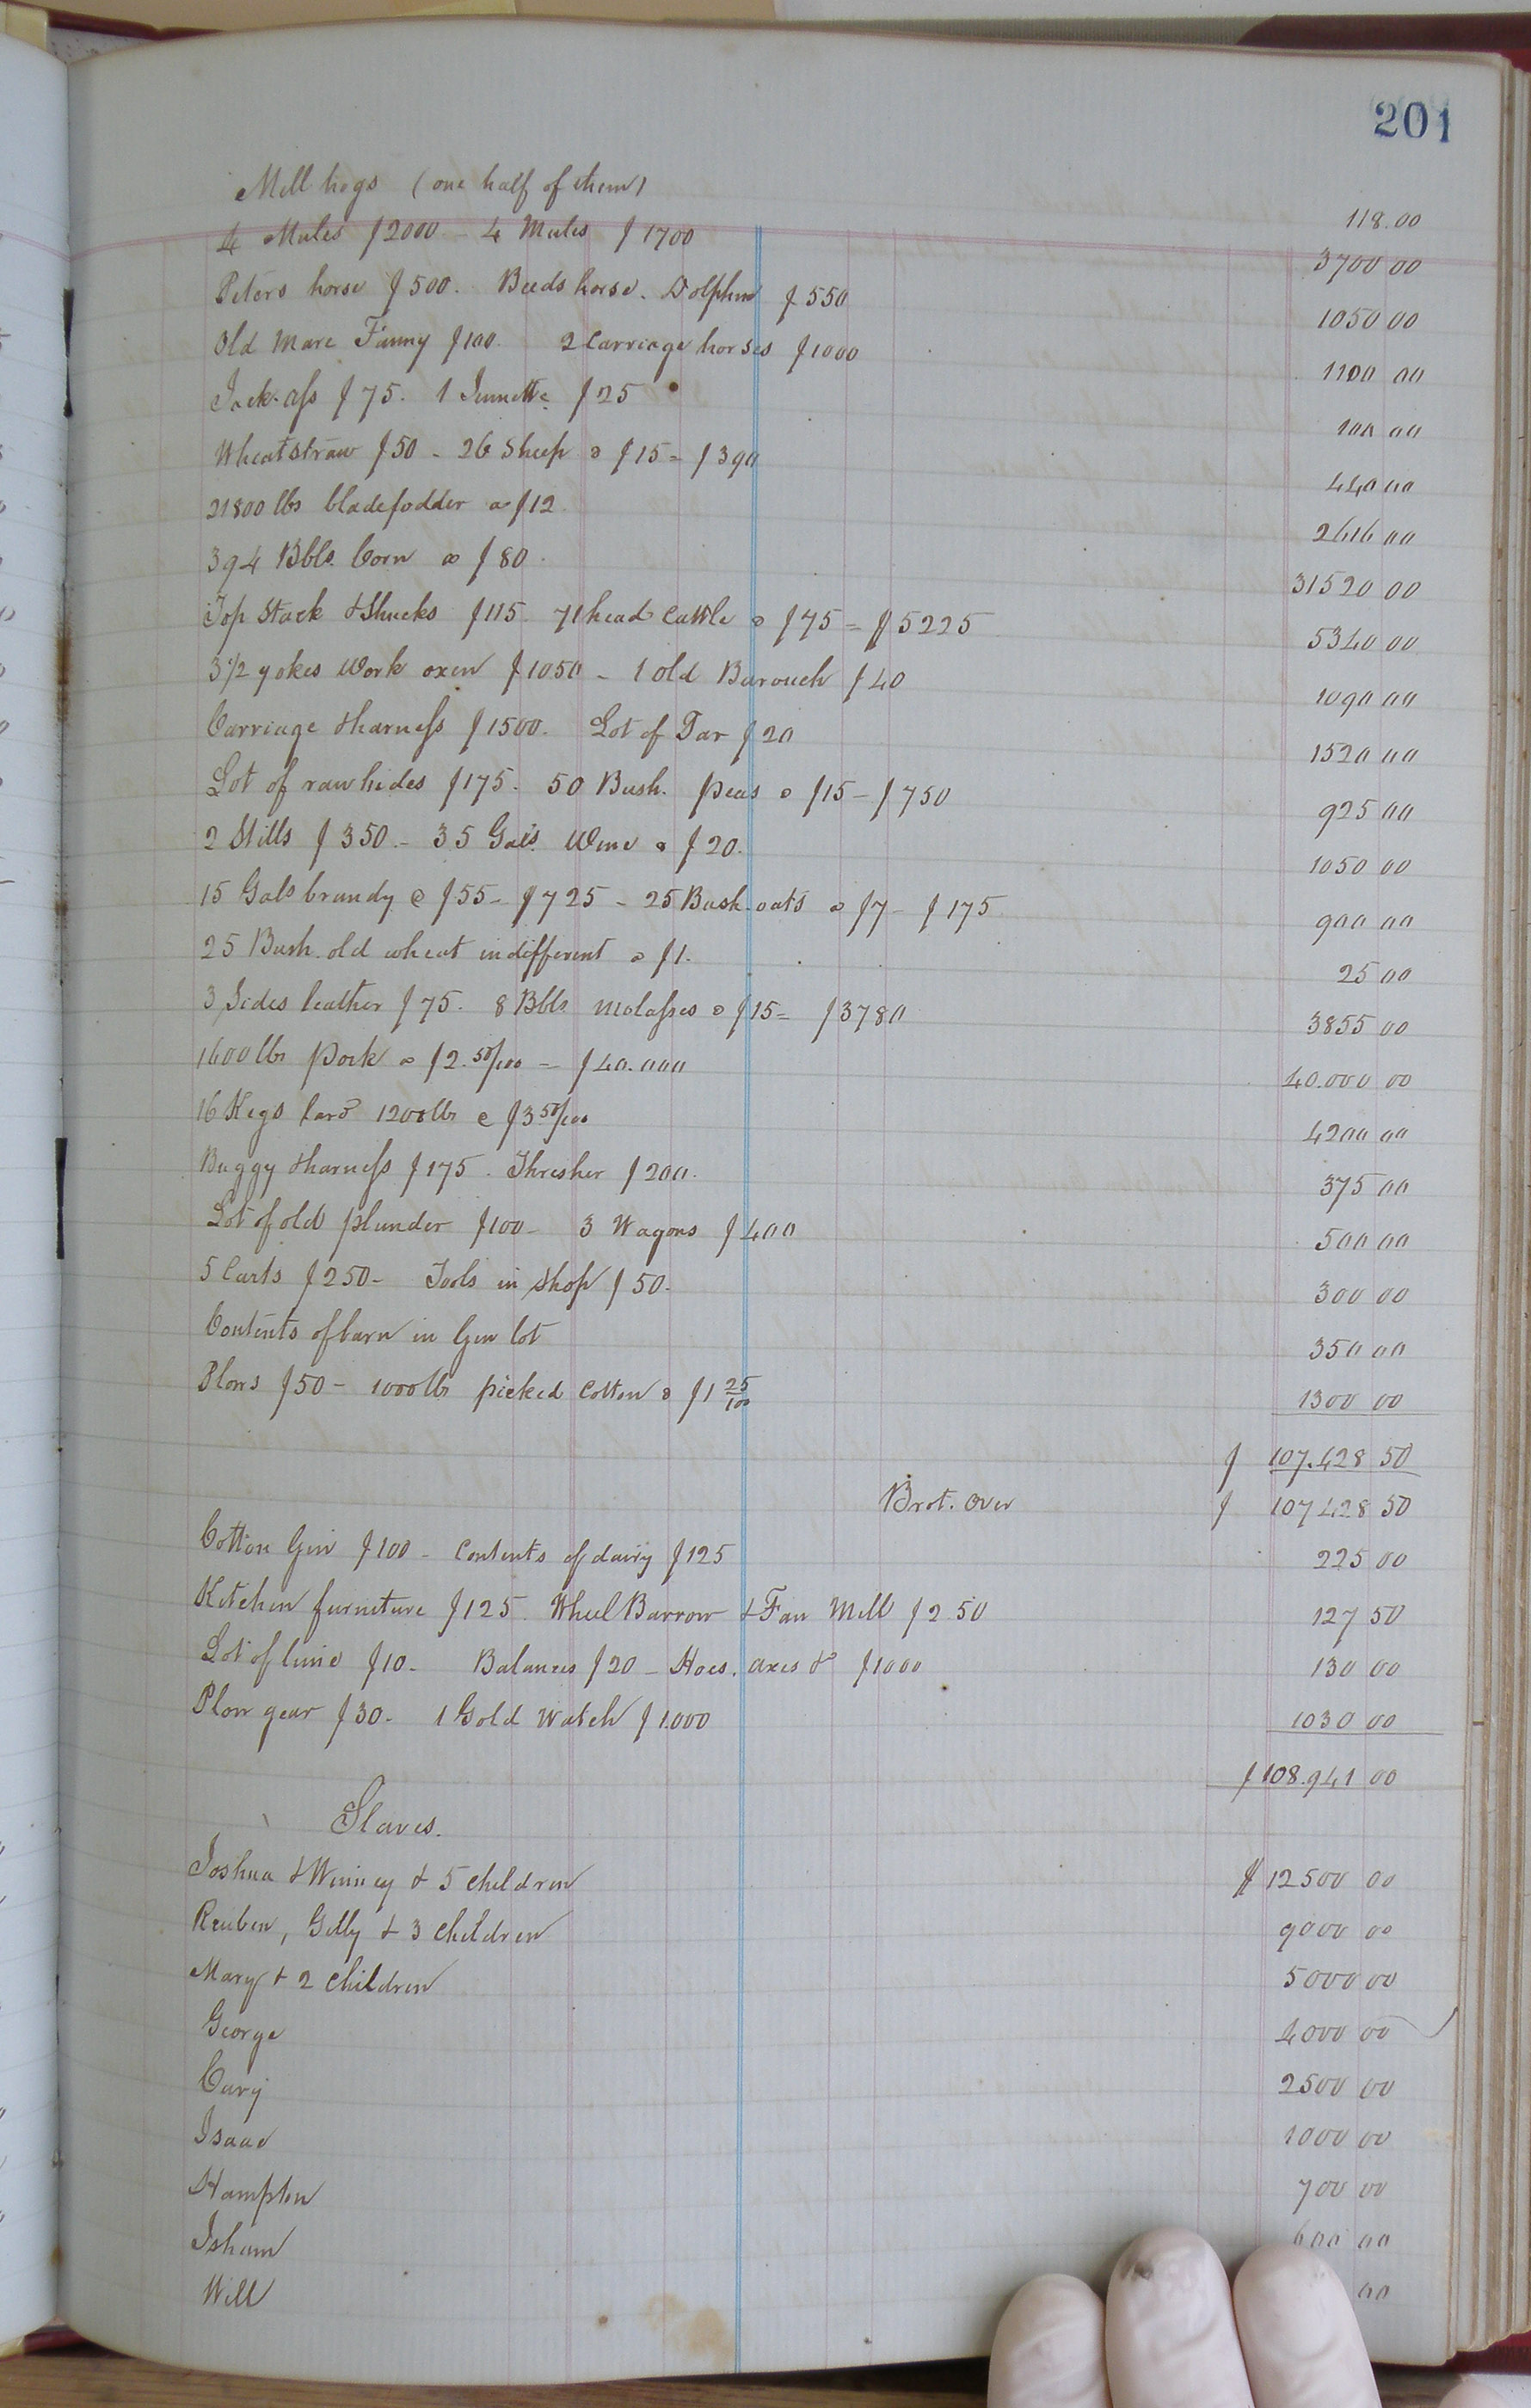 201
Mill hogs (one half of them) 118.00
4 Mules $2000 - 4 Mules $1700 3700 00
Peters horse $500. Beeds horse. Dolphin $550 1050 00
Old Mare Fanny $100. 2 Carriage horses $1000 1100 00
Jack-ass $75. 1 Jennette $25 100 00
Wheatstraw $50 - 26 Sheep @ $15 = $390 440 00
21800 lbs bladefodder @ $12 2616 00
394 Bbls. Corn @ $80. 31520 00
Top Stack & Shucks $115. 71 head Cattle @ $75 = $5225 5340 00
3 1/2 yokes Work oxen $1050 - 1 old Barouch $40 1090 00
Carriage & harness $1500. Lot of Tar $20 1520 00
Lot of rawhides $175. 50 Bush. peas @ $15 - $750 925 00
2 Stills $350. - 35 Gals. Wine @ $20. 1050 00
15 Gals brandy @ $55 - $725 - 25 Bush. oats @ $7 - $175 900 00
25 Bush. old wheat indifferent @ $1. 25 00
3 Sides leather $75. 8 Bbls molasses @ $15 = $3780 3855 00
1600 lbs Pork @ $2.50/100 = $40.000 40.000 00
16 Kegs lard 1200 lbs @ $3 50/100 4200 00
Buggy & harness $175. Thresher $200. 375 00
Lot of old plunder $100 - 3 Wagons $400 500 00
5 Carts $250 - Tools in shop $50. 300 00
Contents of barn in Gin lot 350 00
Plows $50 - 1000 lb picked Cotton @ $1 25/100 1300 00
$ 107.428 50
Brot. over $ 107428 50
Cotton Gin $100 - Contents of dairy $125 225 00
Kitchen furniture $125. Wheel Barrow & Fan Mill $2 50 127 50
Lot of lime $10 - Balances $20 - Hoes, axes & $1000 130 00
Plow gear $30 - 1 Gold Watch $1.000 1030 00
$108.941 00
Slaves.
Joshua & Winney & 5 children $12500 00
Reuben, Gilly & 3 Children 9000 00
Mary & 2 Children 5000 00
George 4000 00
Cary 2500 00
Isaac 1000 00
Hampton 700 00
Isham 600 00
Will 00